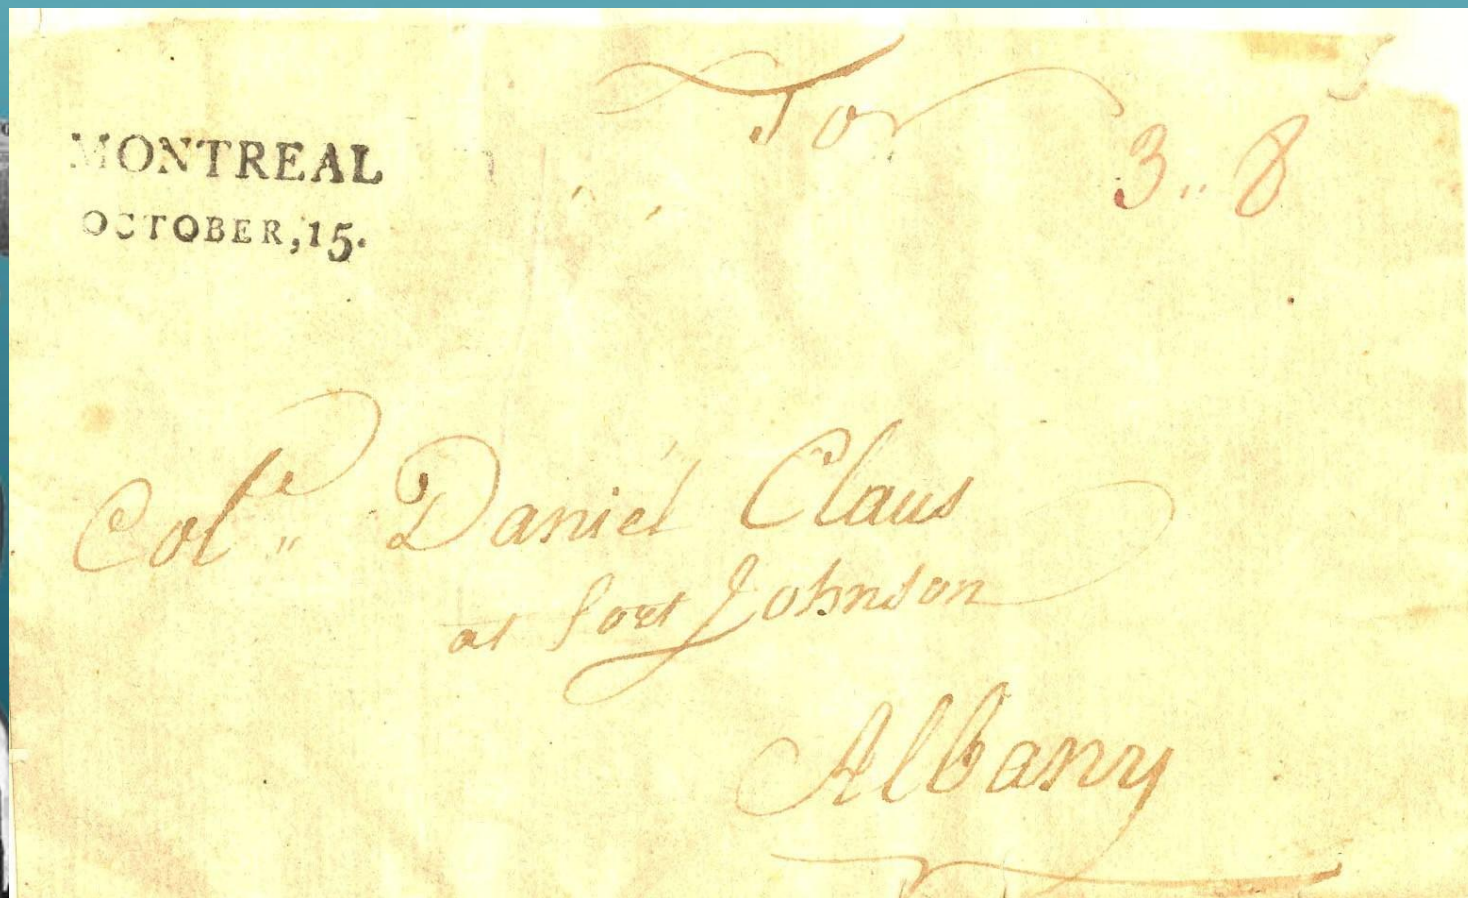 MONTREAL
OCTOBER, 15.
For
3 " 8
Col.<sup>l</sup> " Daniel Claus
at fort Johnson
Albany